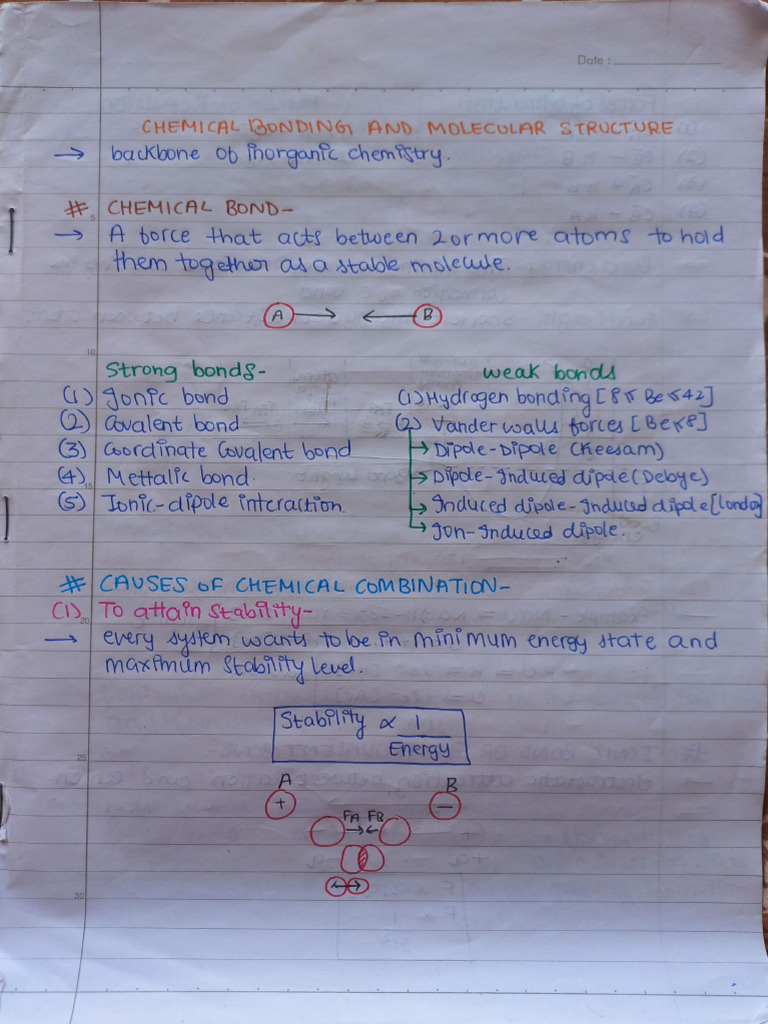 Date :
CHEMICAL BONDING AND MOLECULAR STRUCTURE
→ backbone of inorganic chemistry.
# CHEMICAL BOND-
5
→ A force that acts between 2 or more atoms to hold
them together as a stable molecule.
A → ← B
10
Strong bonds-
(1) Ionic bond
(2) Covalent bond
(3) Coordinate Covalent bond
(4) Mettalic bond.
15
(5) Ionic-dipole interaction.
weak bonds
(1) Hydrogen bonding [8≤ Be ≤42]
(2) Vander walls forces [Be≤8]
→ Dipole-Dipole (Keesam)
→ Dipole-Induced dipole (Debye)
→ Induced dipole-Induced dipole [London]
→ Ion-Induced dipole.
# CAUSES OF CHEMICAL COMBINATION-
(1) To attain stability-
20
→ every system wants to be in minimum energy state and
maximum stability level.
Stability ∝ 1
Energy
25
A B
+ −
FA FB
→ ←
30